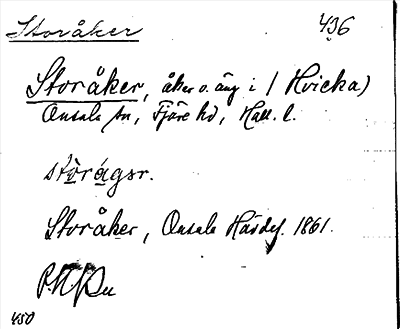 Storåker 436
Storåker, åker o. äng i (Hvicka)
Onsala sn, Fjäre hd, Hall. l.
stòrágsr.
Storåker, Onsala Härdesh. 1861.
450